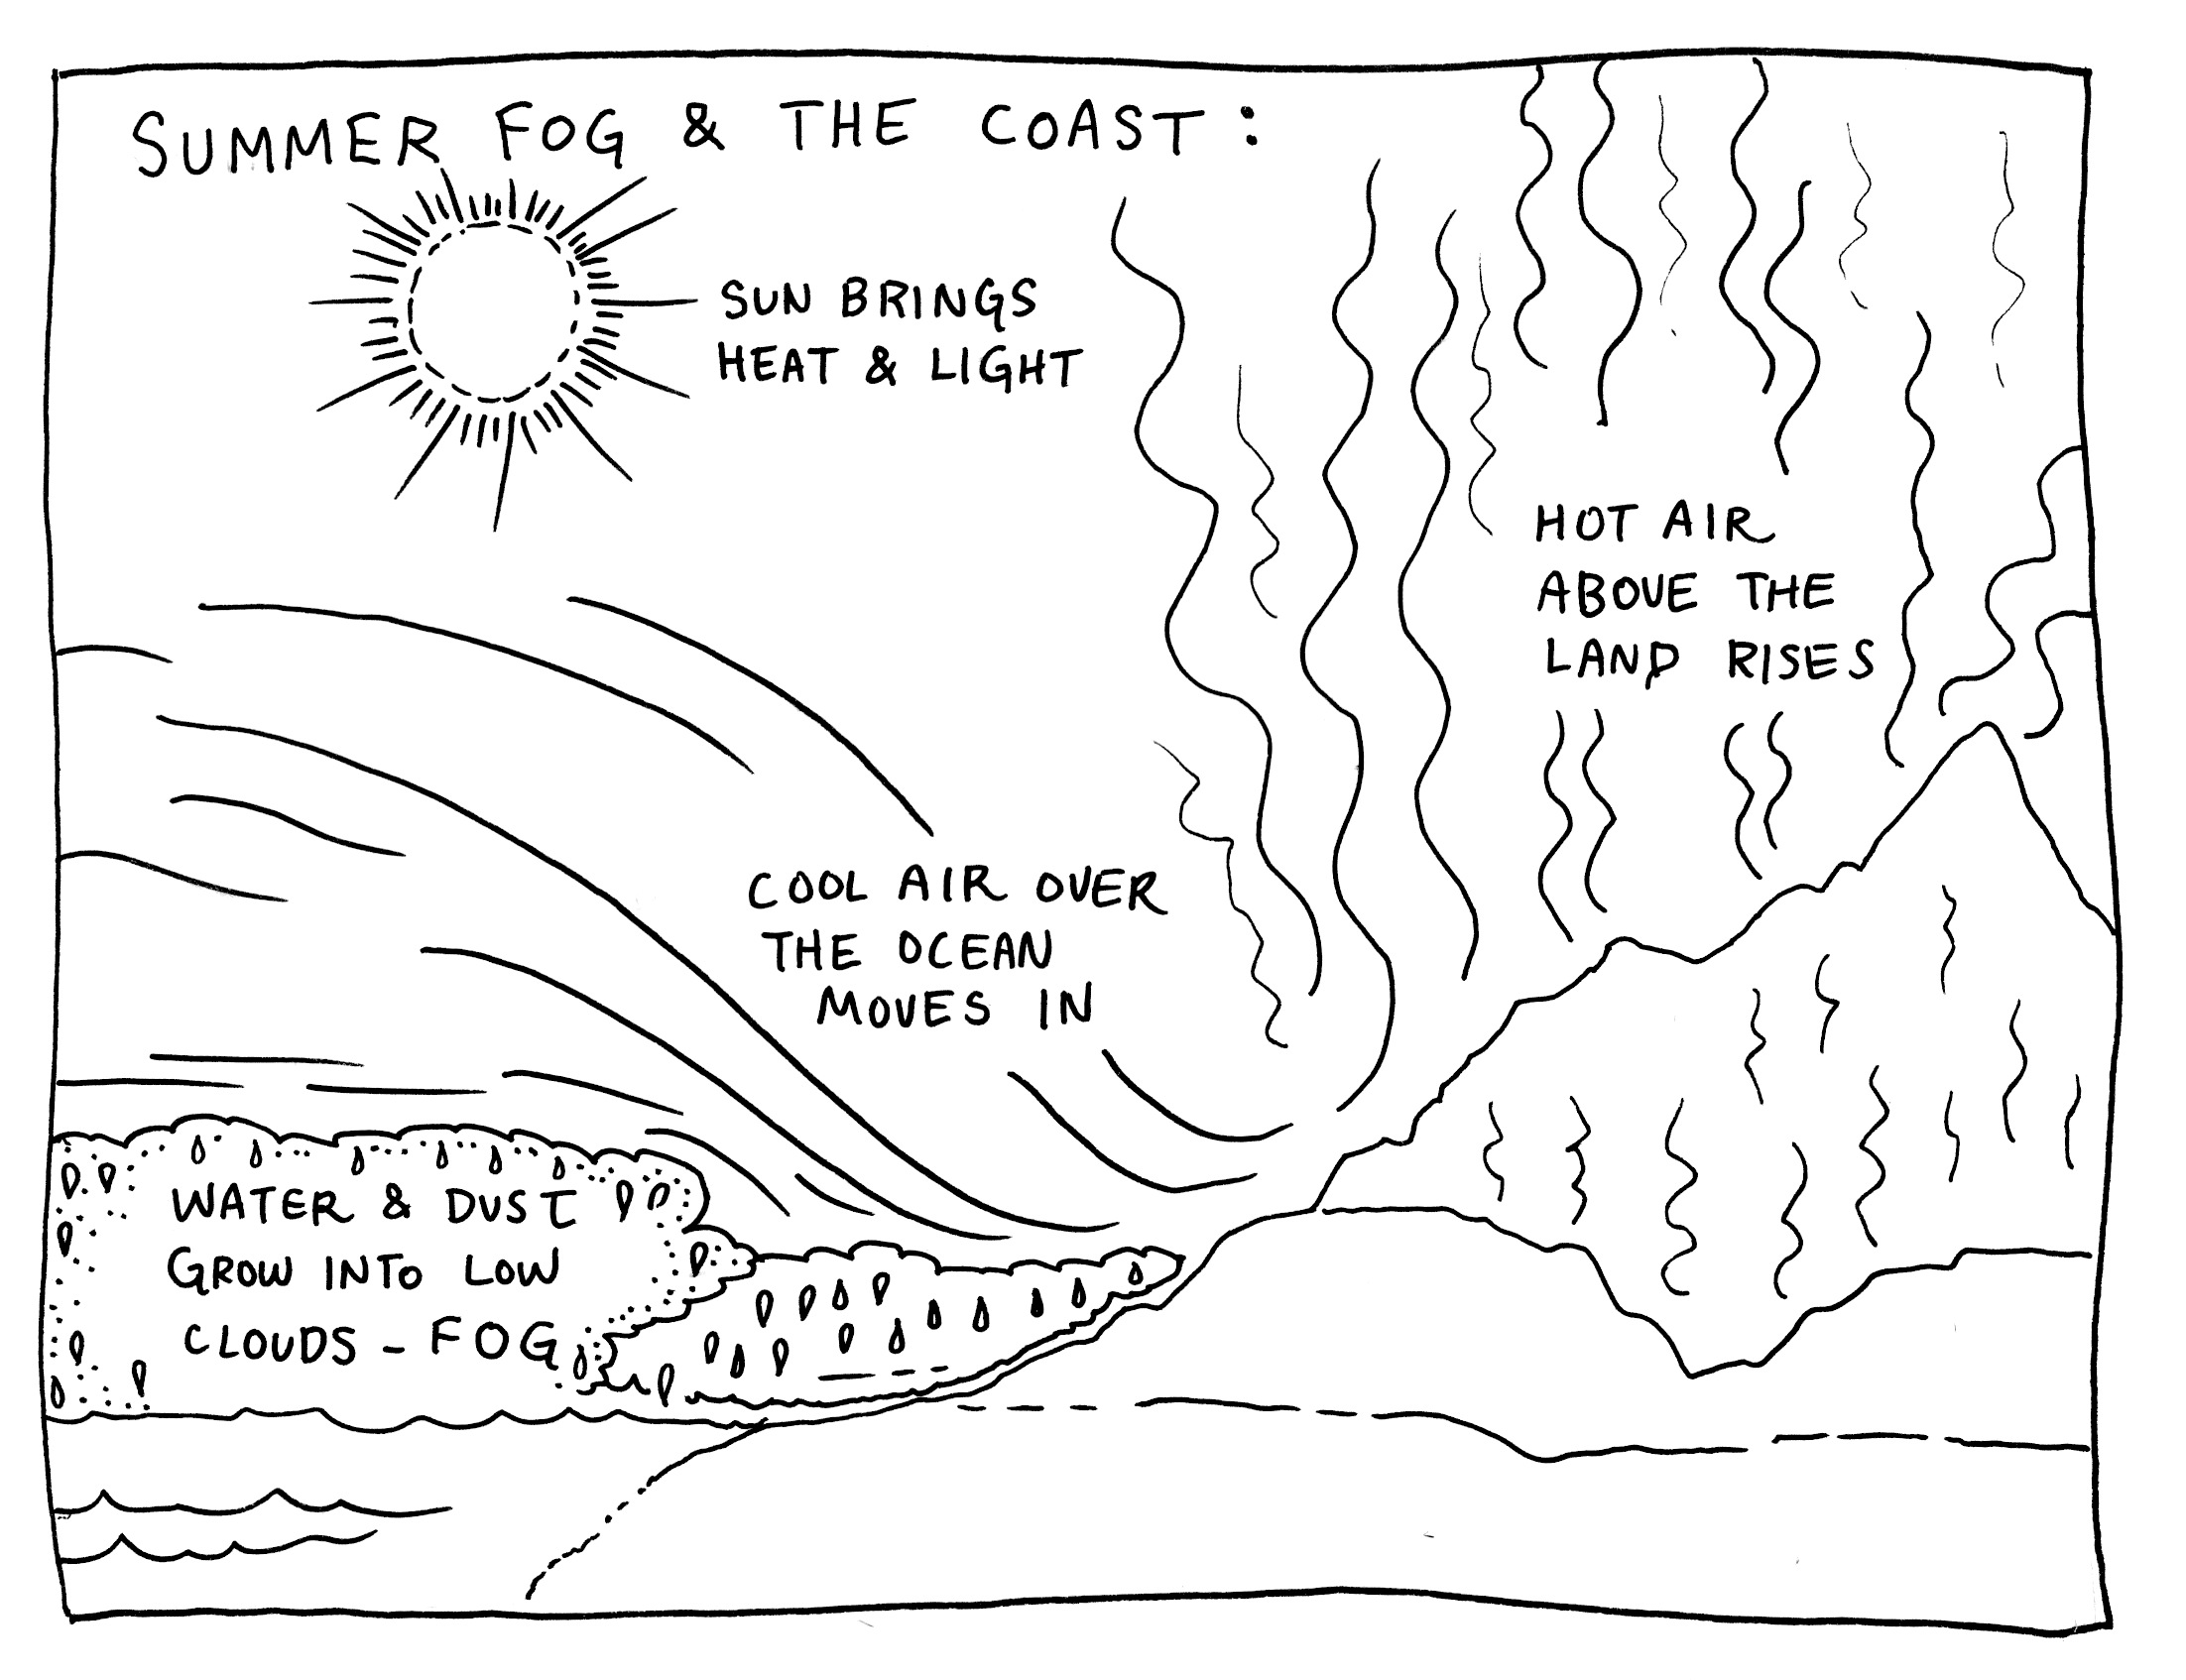 SUMMER FOG & THE COAST:
SUN BRINGS
HEAT & LIGHT
HOT AIR
ABOVE THE
LAND RISES
COOL AIR OVER
THE OCEAN
MOVES IN
WATER & DUST
GROW INTO LOW
CLOUDS - FOG